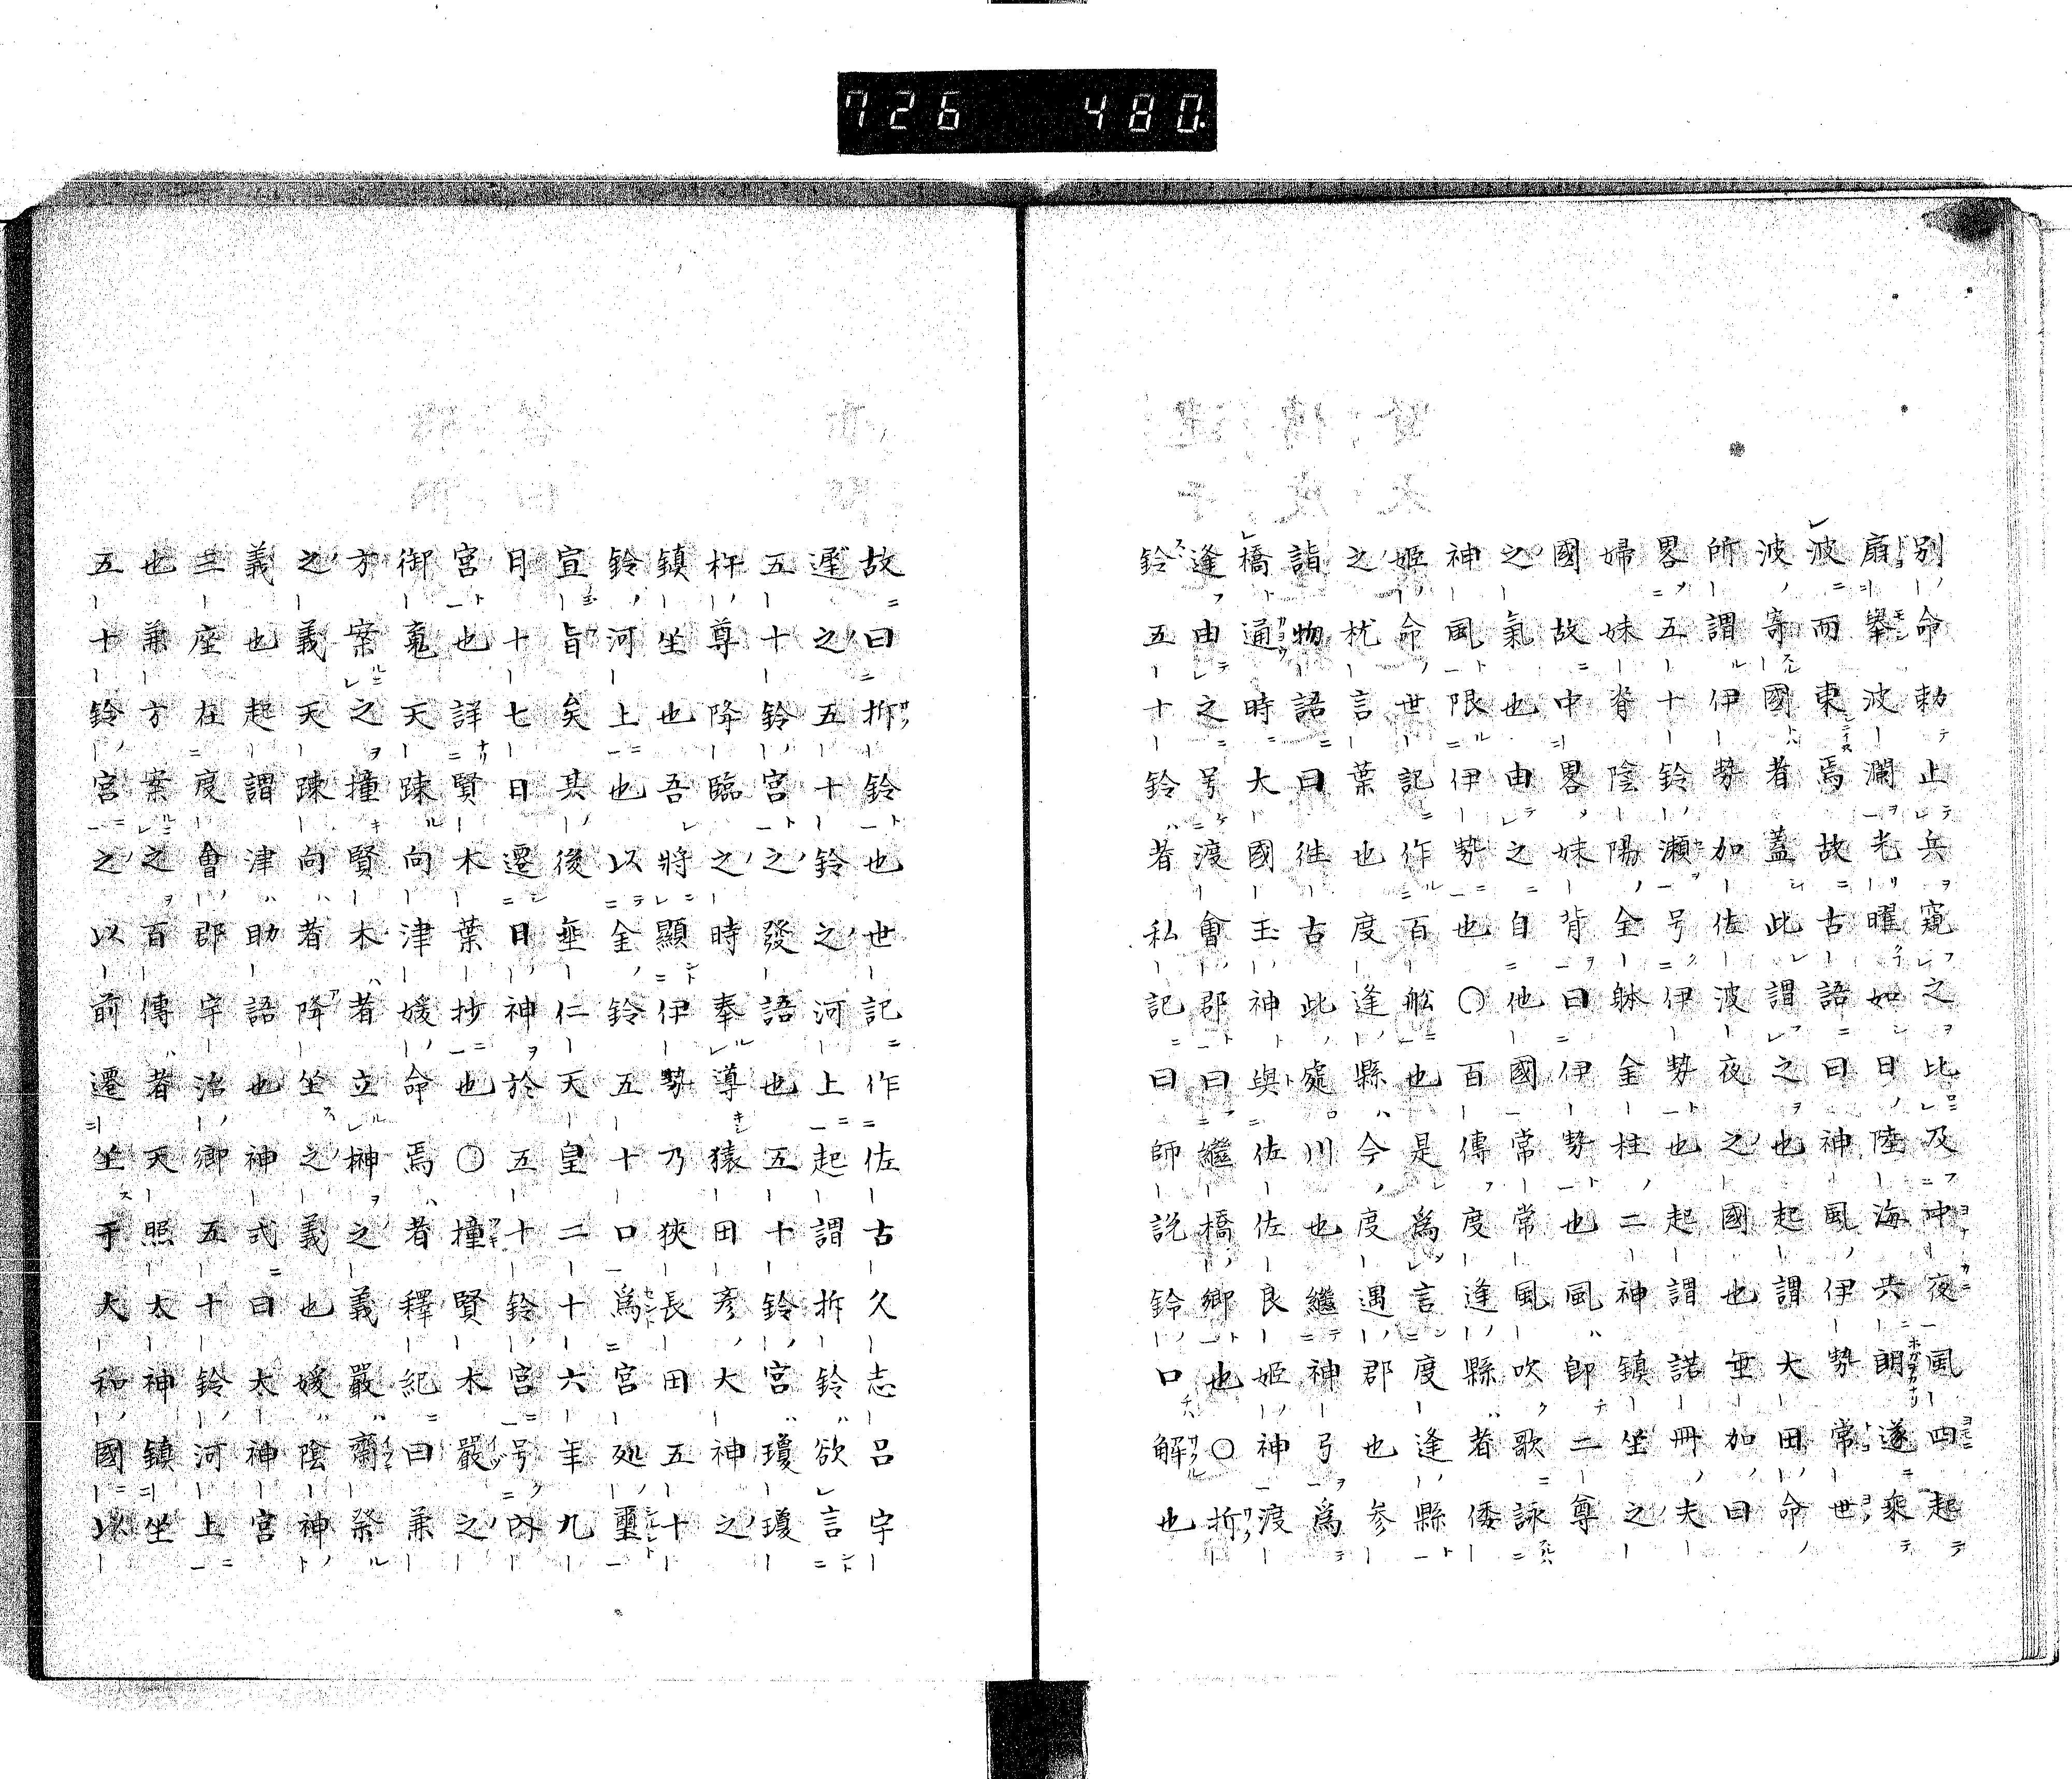 726 480
別命勅止兵窺之比及冲夜風四起
扇擧波瀾光曜如日陸海共朗遂乘
波而東焉故古語曰神風伊勢常世
波寄國者蓋此謂之也起謂大田命
師謂伊勢加佐波夜之國也無加曰
畧五十鈴瀬号伊勢也起謂諾冊夫
婦妹脊陰陽全躰金柱二神鎮坐之
國故中畧妹背曰伊勢也風即二尊
之氣也由之自他國常常風吹歌詠
神風限伊勢也〇百傳度逢縣者倭
姬命世記作百舩也是為言度逢縣
之枕言葉也度逢縣今度遇郡也参
詣物語曰徃古此處川也繼神弓為
橋通時大國玉神與佐佐良姬神渡
逢由之号渡會郡曰繼橋鄉也〇拆
鈴五十鈴者私記曰師說鈴口解也
故曰拆鈴也世記作佐古久志呂宇
遲之五十鈴之河上起謂拆鈴欲言
五十鈴宮之發語也五十鈴宮瓊瓊
杵尊降臨之時奉導猿田彥大神之
鎮坐也吾將顯伊勢乃狹長田五十
鈴河上也以金鈴五十口為宮処璽
宣旨矣其後垂仁天皇二十六年九
月十七日遷日神於五十鈴宮号內
宮也詳賢木葉抄也〇撞賢木嚴之
御䰟天踈向津媛命焉者釋紀曰兼
方案之撞賢木者立榊之義嚴齋祭
之義天踈向者降坐之義也媛陰神
義也起謂津助語也神式曰太神宮
三座在度會郡宇治鄉五十鈴河上
也兼方案之百傳者天照太神鎮坐
五十鈴宮之以前遷坐于大和國以